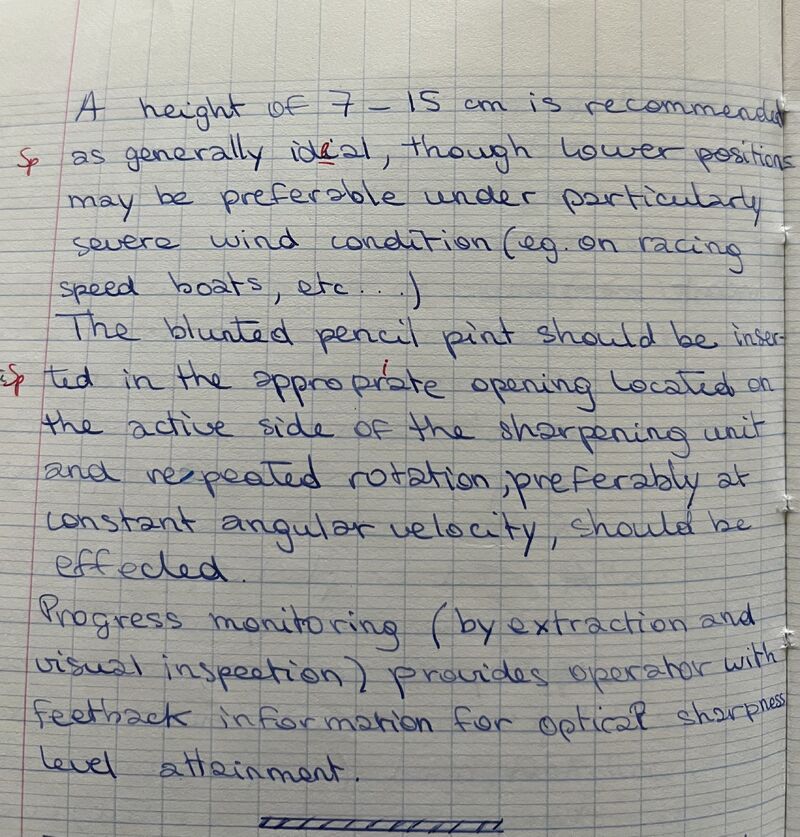 A height of 7 - 15 cm is recommended
Sp as generally ideal, though lower positions
may be preferable under particularly
severe wind condition (eg. on racing
speed boats, etc....)
The blunted pencil pint should be inser-
Sp ted in the appropriate opening located on
the active side of the sharpening unit
and repeated rotation, preferably at
constant angular velocity, should be
effected.
Progress monitoring (by extraction and
visual inspection) provides operator with
feetback information for optical sharpness
level attainment.